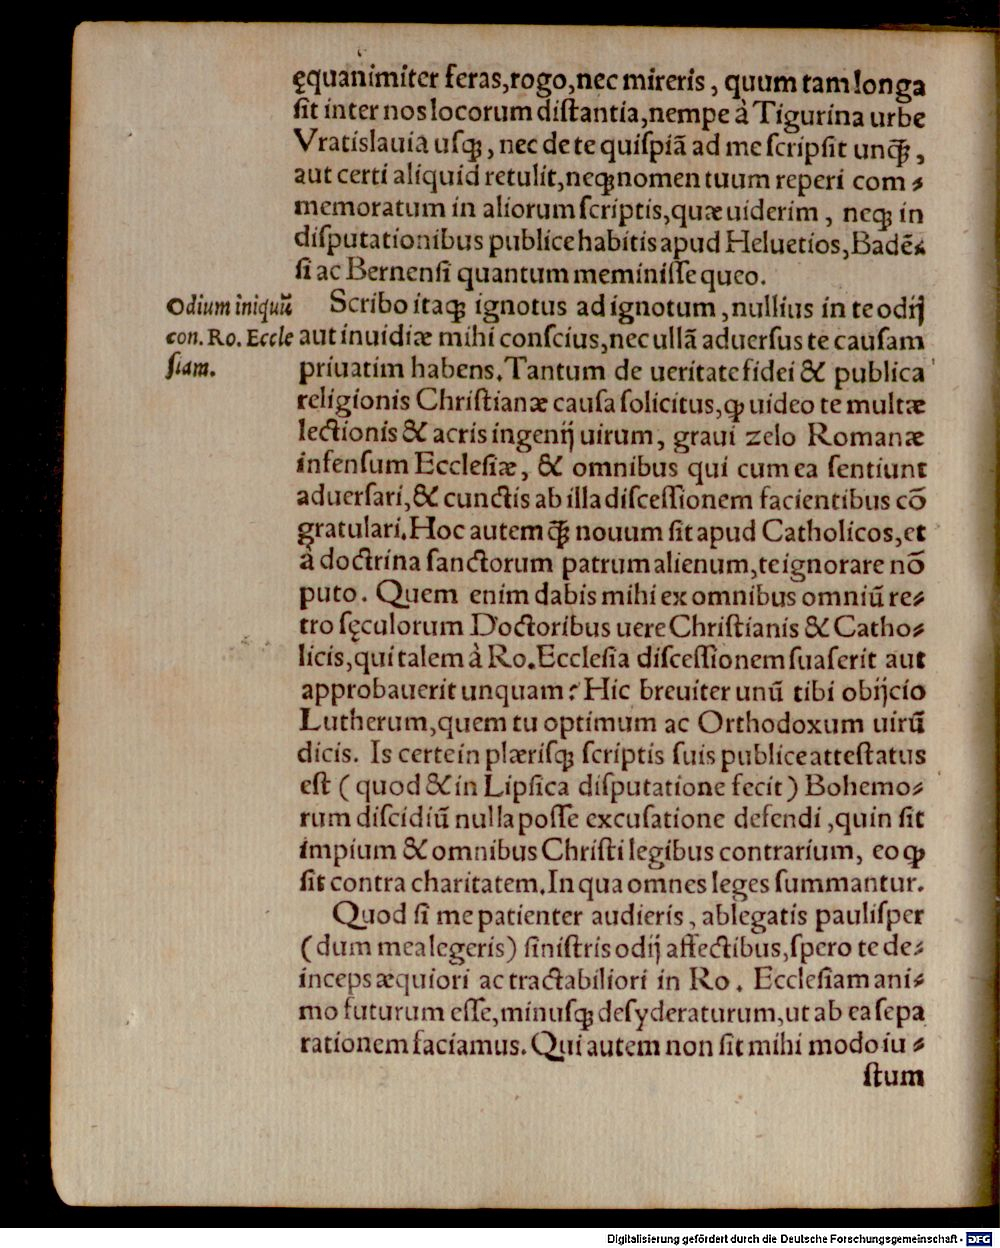 ęquanimiter feras, rogo, nec mireris, quum tam longa
ſit inter nos locorum diſtantia, nempe à Tigurina urbe
Vratislauia uſqꝫ, nec de te quiſpiã ad me ſcripſit unq̃ꝫ,
aut certi aliquid retulit, neqꝫ nomen tuum reperi com⸗
memoratum in aliorum ſcriptis, quæ uiderim, neqꝫ in
diſputationibus publice habitis apud Heluetios, Badẽ⸗
ſi ac Bernenſi quantum meminiſſe queo.
Odium iniquũ
con. Ro. Eccle
ſiam.
Scribo itaqꝫ ignotus ad ignotum, nullius in te odij
aut inuidiæ mihi conſcius, nec ullã aduerſus te cauſam
priuatim habens. Tantum de ueritate fidei & publica
religionis Chriſtianæ cauſa ſolicitus, ꝙ uideo te multæ
lectionis & acris ingenij uirum, graui zelo Romanæ
infenſum Eccleſiæ, & omnibus qui cum ea ſentiunt
aduerſari, & cunctis ab illa diſceſſionem facientibus cõ
gratulari. Hoc autem q̃ꝫ nouum ſit apud Catholicos, et
à doctrina ſanctorum patrum alienum, te ignorare nõ
puto. Quem enim dabis mihi ex omnibus omniũ re⸗
tro ſęculorum Doctoribus uere Chriſtianis & Catho⸗
licis, qui talem à Ro. Eccleſia diſceſſionem ſuaſerit aut
approbauerit unquam? Hic breuiter unũ tibi obijcio
Lutherum, quem tu optimum ac Orthodoxum uirũ
dicis. Is certe in plæriſqꝫ ſcriptis ſuis publice atteſtatus
eſt (quod & in Lipſica diſputatione fecit) Bohemo⸗
rum diſcidiũ nulla poſſe excuſatione defendi, quin ſit
impium & omnibus Chriſti legibus contrarium, eo ꝙ
ſit contra charitatem. In qua omnes leges ſummantur.
Quod ſi me patienter audieris, ablegatis pauliſper
(dum mea legeris) ſiniſtris odij affectibus, ſpero te de⸗
inceps æquiori ac tractabiliori in Ro. Eccleſiam ani⸗
mo futurum eſſe, minuſqꝫ deſyderaturum, ut ab ea ſepa
rationem faciamus. Qui autem non ſit mihi modo iu⸗
ſtum
Digitalisierung gefördert durch die Deutsche Forschungsgemeinschaft - DFG